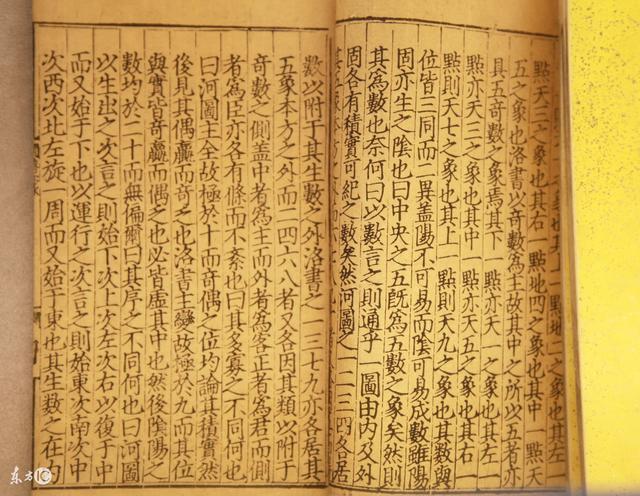 之象也其上一點地二之象也其左
點天三之象也其右一點地四之象也其中一點天
五之象也洛書以奇數爲主故其中之所以五者亦
具五奇數之象焉其下一點亦天一之象也其左一
點亦天三之象也其中一點亦天五之象也其右一
點則天七之象也其上一點則天九之象也其數與
位皆三同而二異盖陽不可易而陰可易成數雖陽
固亦生之陰也曰中央之五旣爲五數之象矣然則
其爲數也奈何曰以數言之則通乎一圖由內及外
固各有積實可紀之數矣然河圖之一二三四各居
數以附于其生數之外洛書之一三七九亦各居其
五象本方之外而二四六八者又各因其類以附于
奇數之側盖中者爲主而外者爲客正者爲君而側
者爲臣亦各有條而不紊也曰其多寡之不同何也
曰河圖主全故極於十而奇偶之位均論其積實然
後見其偶贏而奇乏也洛書主變故極於九而其位
與實皆奇贏而偶乏也必皆虛其中也然後陰陽之
數均於二十而無偏爾曰其序之不同何也曰河圖
以生出之次言之則始下次上次左次右以復于中
而又始于下也以運行之次言之則始東次南次中
次西次北左旋一周而又始于東也其生數之在內
東方IC